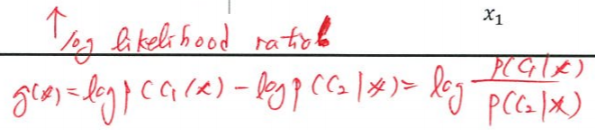 x₁
↑ log likelihood ratio
g(x) = log p(C₁|x) − log p(C₂|x) = log p(C₁|x) / p(C₂|x)